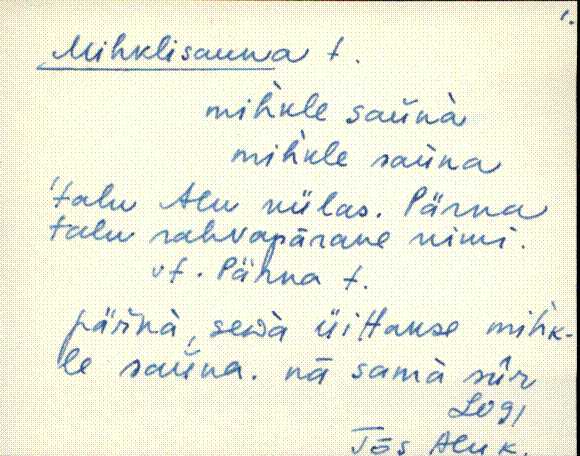 1.
Mihklisauna t.
mih̀kle saùnà
mih̀kle saùna
'talu Alu külas. Pärna
talu rahvapärane nimi.
vt. Pärna t.
pär̀nà, sedà üittasse mih̀k-
le saùna. nā samà sūr
Jõs Alu k.